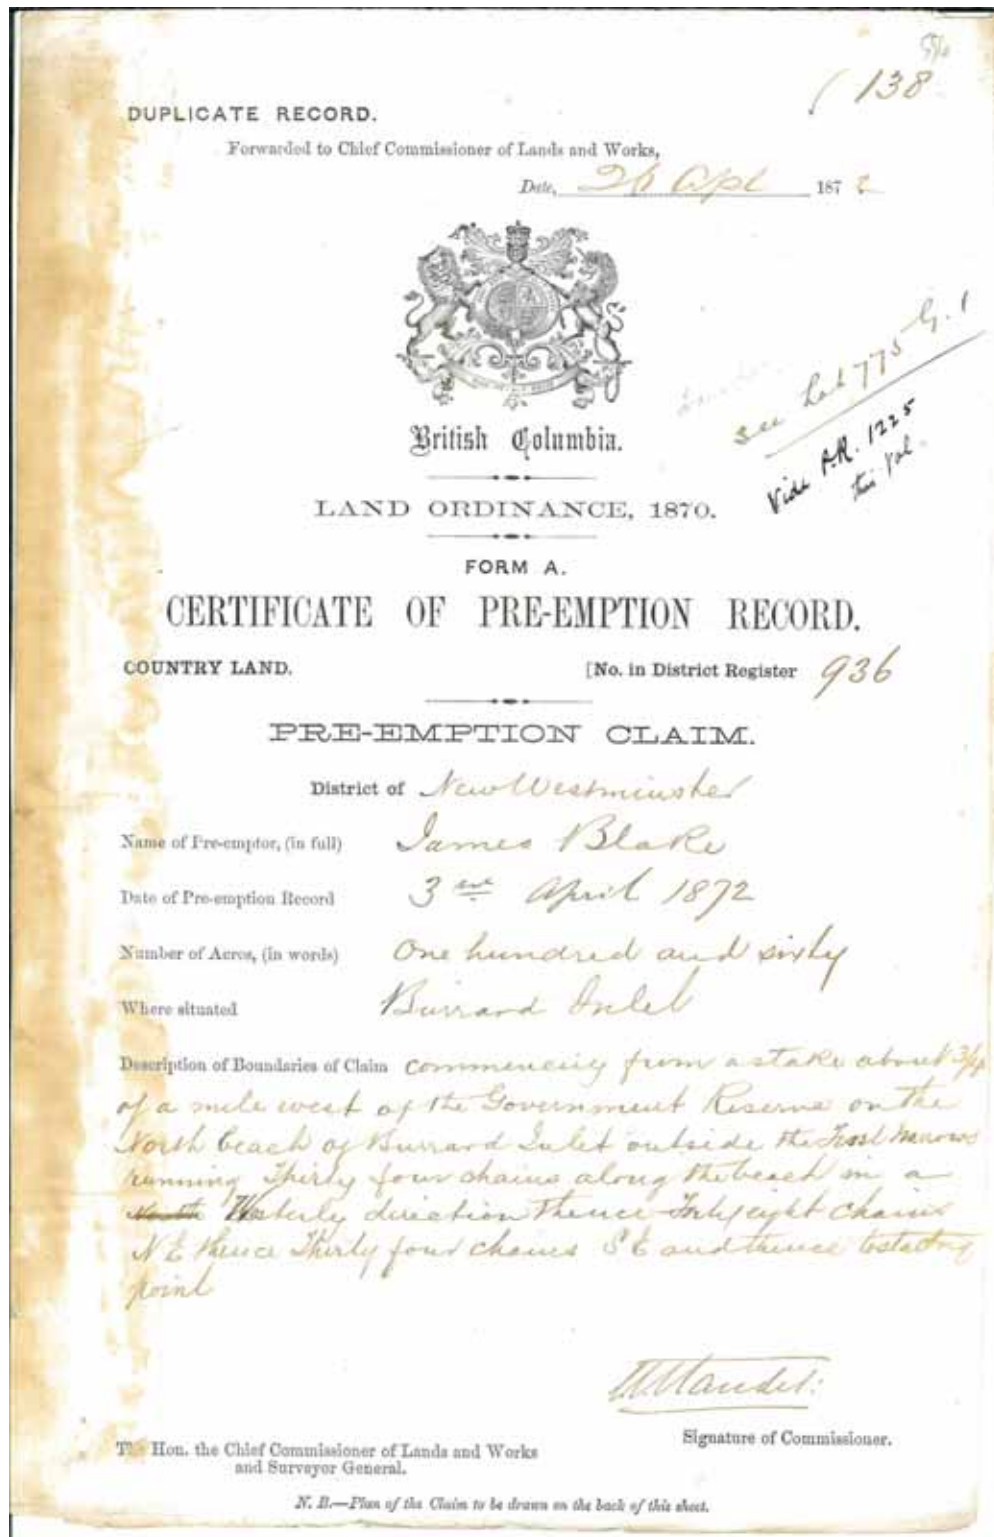 138
DUPLICATE RECORD.
Forwarded to Chief Commissioner of Lands and Works,
Date, 26 Apl 1872
see Lot 775 G. 1
Vide P.R. 1225
this Vol.
British Columbia.
LAND ORDINANCE, 1870.
FORM A.
CERTIFICATE OF PRE-EMPTION RECORD.
COUNTRY LAND. [No. in District Register 936
PRE-EMPTION CLAIM.
District of New Westminster
Name of Pre-emptor, (in full) James Blake
Date of Pre-emption Record 3rd April 1872
Number of Acres, (in words) One hundred and sixty
Where situated Burrard Inlet
Description of Boundaries of Claim commencing from a stake about 3/4
of a mile west of the Government Reserve on the
North beach of Burrard Inlet outside the First Narrows
running Thirty four chains along the beach in a
North Westerly direction thence Forty eight chains
N E thence Thirty four chains S E and thence to starting
point
Signature of Commissioner.
The Hon. the Chief Commissioner of Lands and Works
and Surveyor General.
N. B.—Plan of the Claim to be drawn on the back of this sheet.